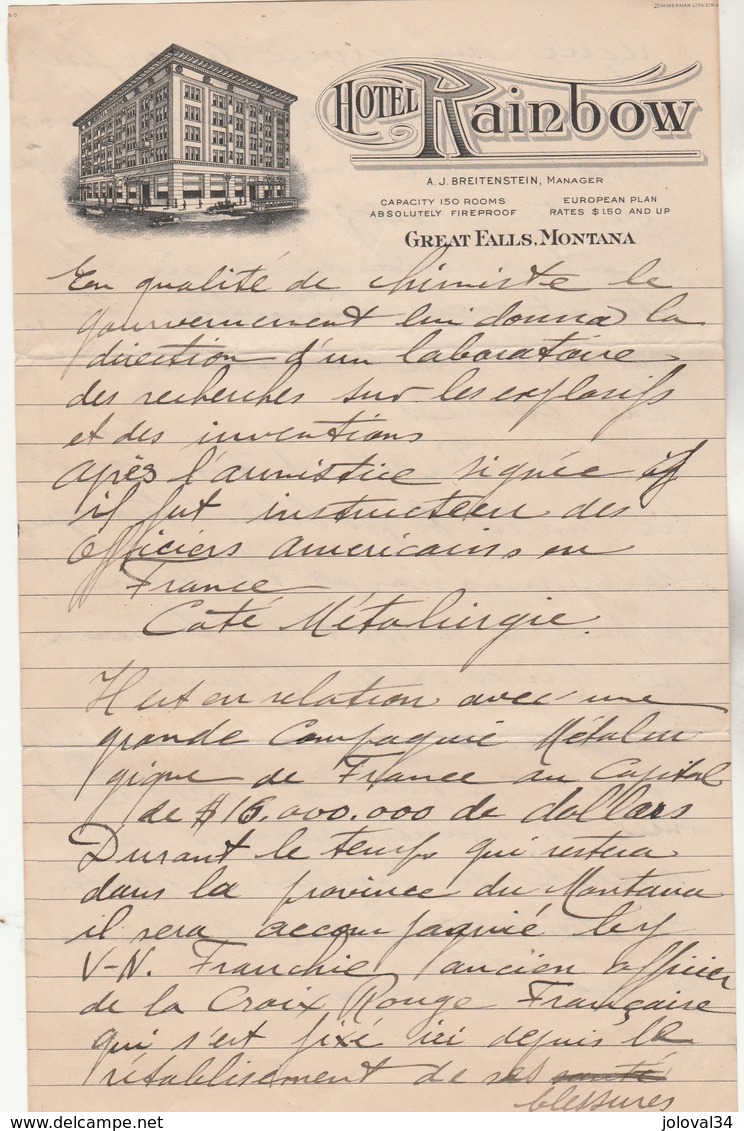 ZIMMERMAN LITH. CIN. O.
HOTEL Rainbow
A. J. BREITENSTEIN, MANAGER
CAPACITY 150 ROOMS EUROPEAN PLAN
ABSOLUTELY FIREPROOF RATES $1.50 AND UP
GREAT FALLS, MONTANA
En qualité de chimiste le
gouvernement lui donna la
direction d'un laboratoire
des recherches sur les explosifs
et des inventions
après l'armistice signée
il fut instructeur des
officiers americains en
France
Coté Métalurgie.
Il est en relation avec une
grande Compagnie Métalur
gique de France au Capital
de $15.000.000 de dollars
Durant le temps qui restera
dans la province du Montana
il sera accompagnié by
V-N. Franchie ancien officier
de la Croix Rouge Française
qui s'est fixé ici depuis le
rétablisement de ses santé
blessures
joloval34